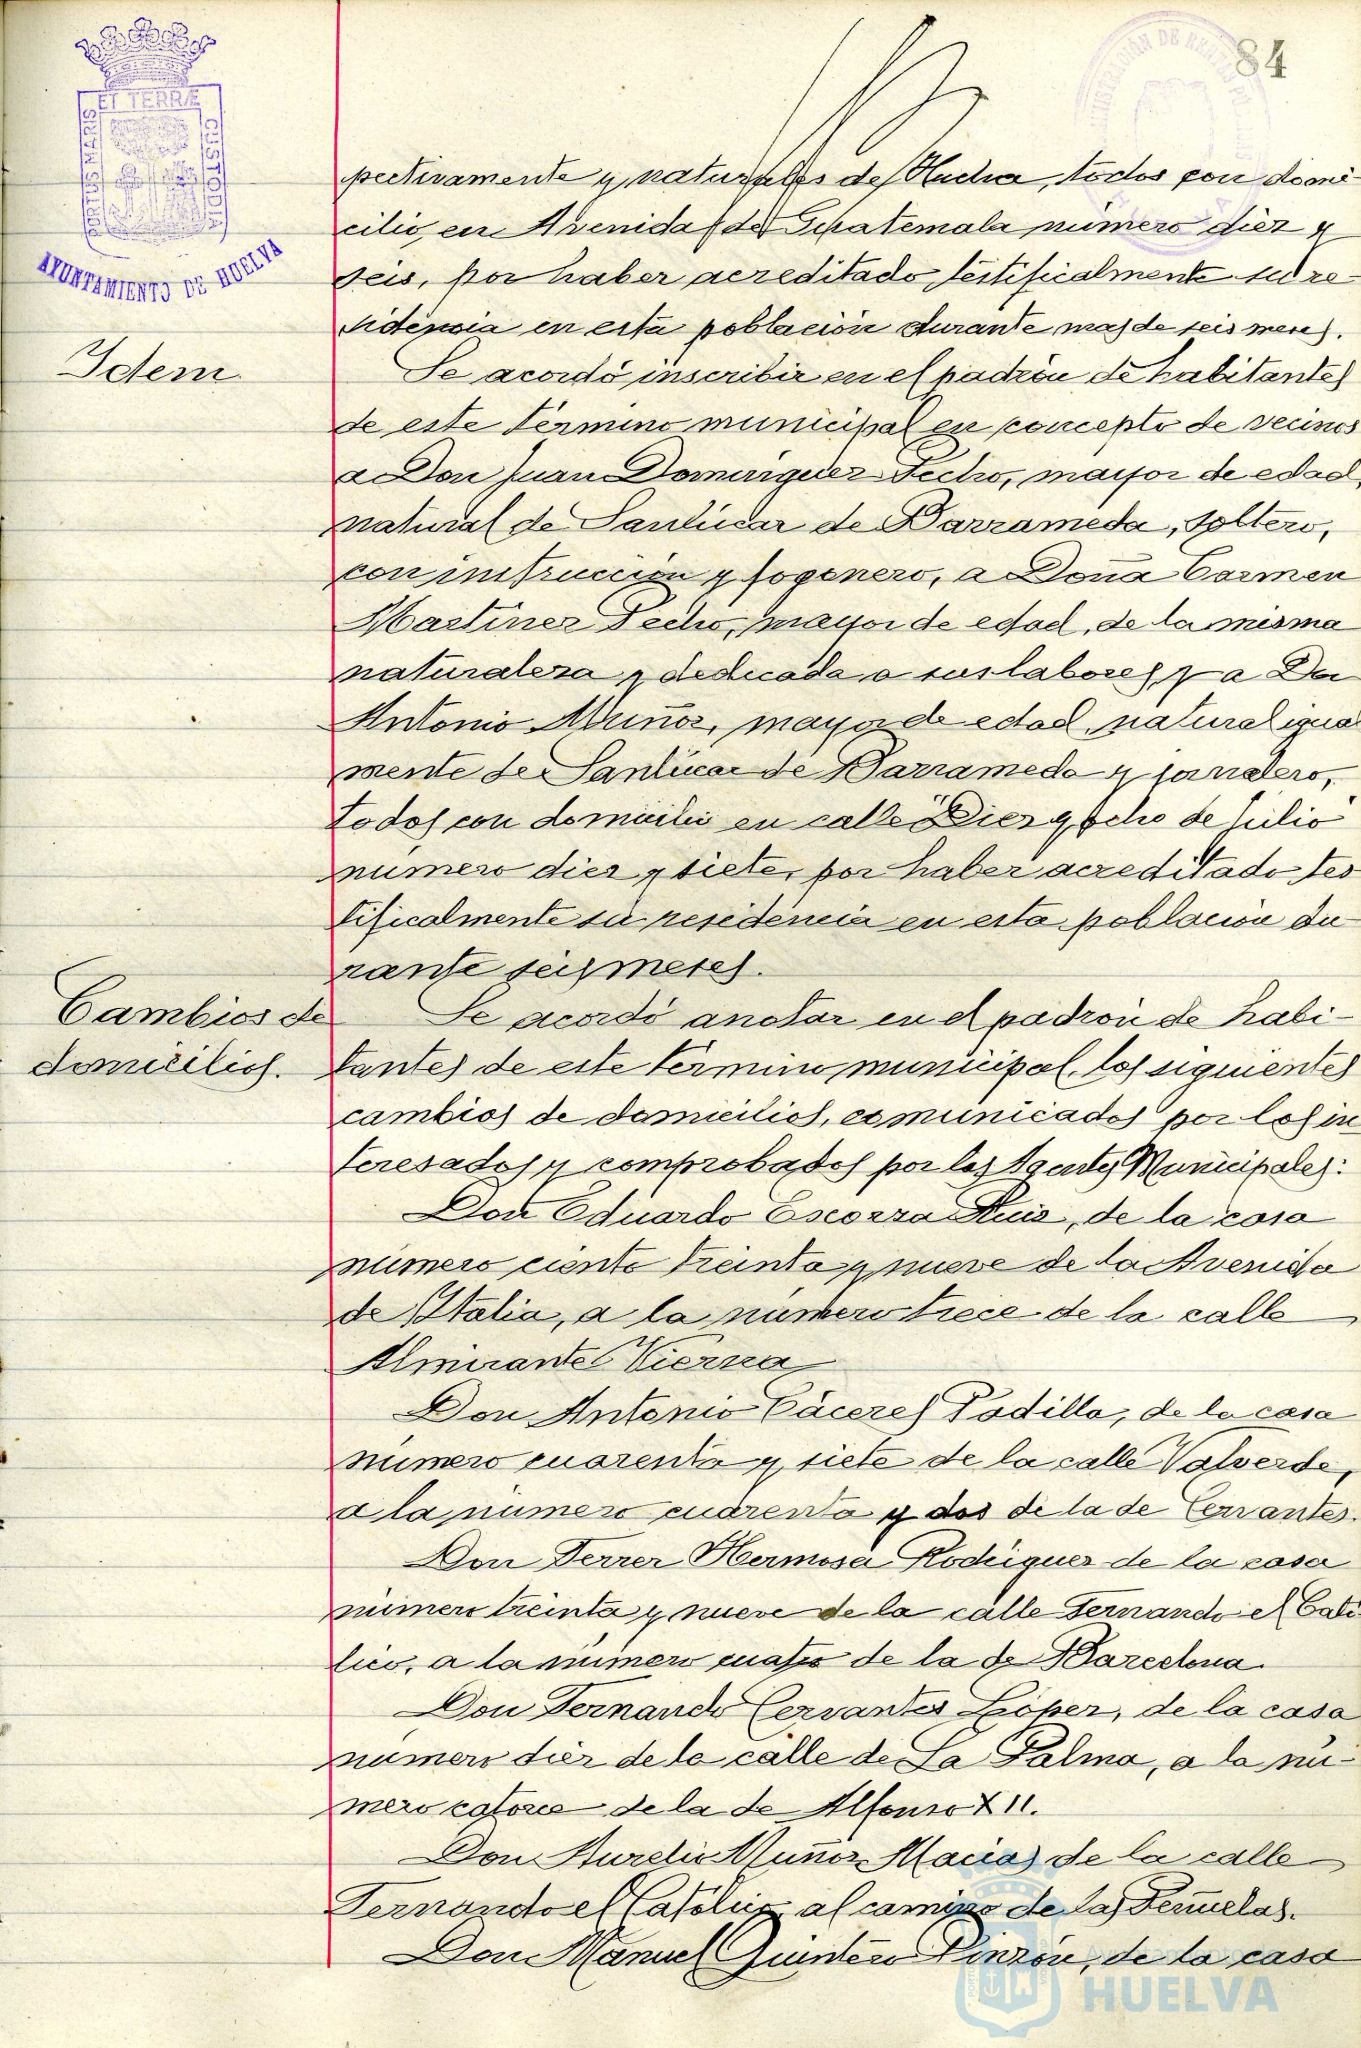 84
ET TERRÆ
PORTUS MARIS
CUSTODIA
AYUNTAMIENTO DE HUELVA
pectivamente y naturales de Huelva, todos con domi-
cilio, en Avenida de Guatemala número diez y
seis, por haber acreditado testificalmente su re-
sidencia en esta población durante mas de seis meses.
Idem
Se acordó inscribir en el padrón de habitantes
de este término municipal en concepto de vecinos
a Don Juan Dominguez Pecho, mayor de edad,
natural de Sanlúcar de Barrameda, soltero,
con instrucción y fogonero, a Doña Carmen
Martinez Pecho, mayor de edad, de la misma
naturaleza y dedicada a sus labores, y a Don
Antonio Muñoz, mayor de edad, natural igual
mente de Sanlúcar de Barrameda y jornalero,
todos con domicilio en calle "Diez y ocho de Julio"
número diez y siete, por haber acreditado tes
tificalmente su residencia en esta población du-
rante seis meses.
Cambios de
domicilios.
Se acordó anotar en el padrón de habi-
tantes de este término municipal, los siguientes
cambios de domicilios, comunicados por los in
teresados y comprobados por los Agentes Municipales:
Don Eduardo Escorza Ruiz, de la casa
número ciento treinta y nueve de la Avenida
de Italia, a la número trece de la calle
Almirante Vierna
Don Antonio Cáceres Padilla, de la casa
número cuarenta y siete de la calle Valverde,
a la número cuarenta y dos de la de Cervantes.
Don Ferrer Hermosa Rodriguez de la casa
número treinta y nueve de la calle Fernando el Cató
lico, a la número cuatro de la de Barcelona.
Don Fernando Cervantes López, de la casa
número diez de la calle de La Palma, a la nú-
mero catorce de la de Alfonso XII.
Don Aurelio Muñoz Macias de la calle
Fernando el Católico al camino de las Peñuelas.
Don Manuel Quintero Pinzón, de la casa
HUELVA